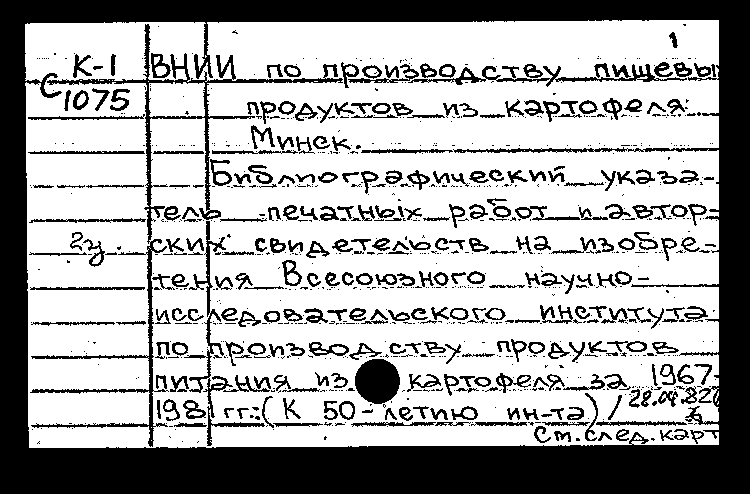 1
К-1 ВНИИ по производству пищевы
С 1075 продуктов из картофеля
Минск.
Библиографический указа-
тель печатных работ и автор-
2у. ских свидетельств на изобре-
тения Всесоюзного научно-
исследовательского института
по производству продуктов
питания из картофеля за 1967-
1981 гг.: (К 50-летию ин-та) /
См. след. карт